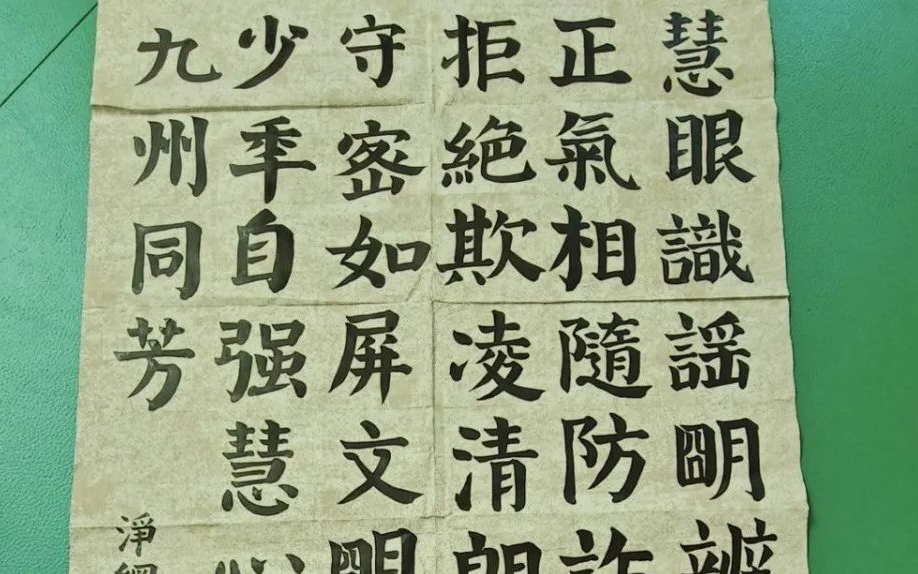 慧眼識謡朙辨
正氣相隨防詐
拒絶欺凌清朗
守密如屏文朙
少年自强慧心
九州同芳
淨網